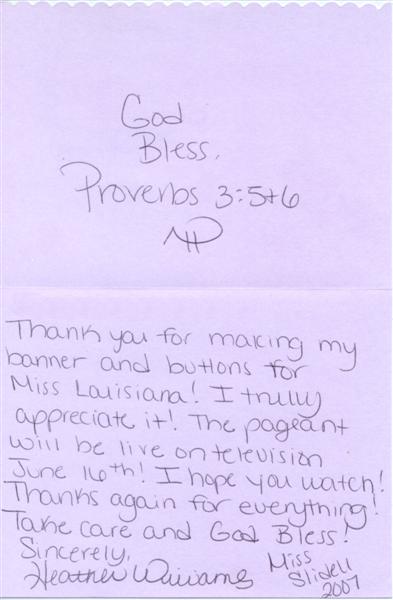 God
Bless,
Proverbs 3:5+6
Thank you for making my
banner and buttons for
Miss Louisiana! I trully
appreciate it! The pageant
will be live on television
June 16th! I hope you watch!
Thanks again for everything!
Take care and God Bless!
Sincerely,
Heather Williams
Miss
Slidell
2007